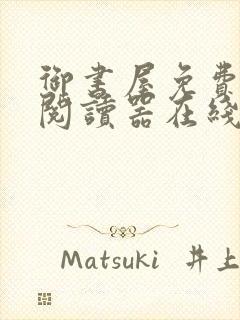 御書屋免費
閱讀器在綫
Matsuki 井上